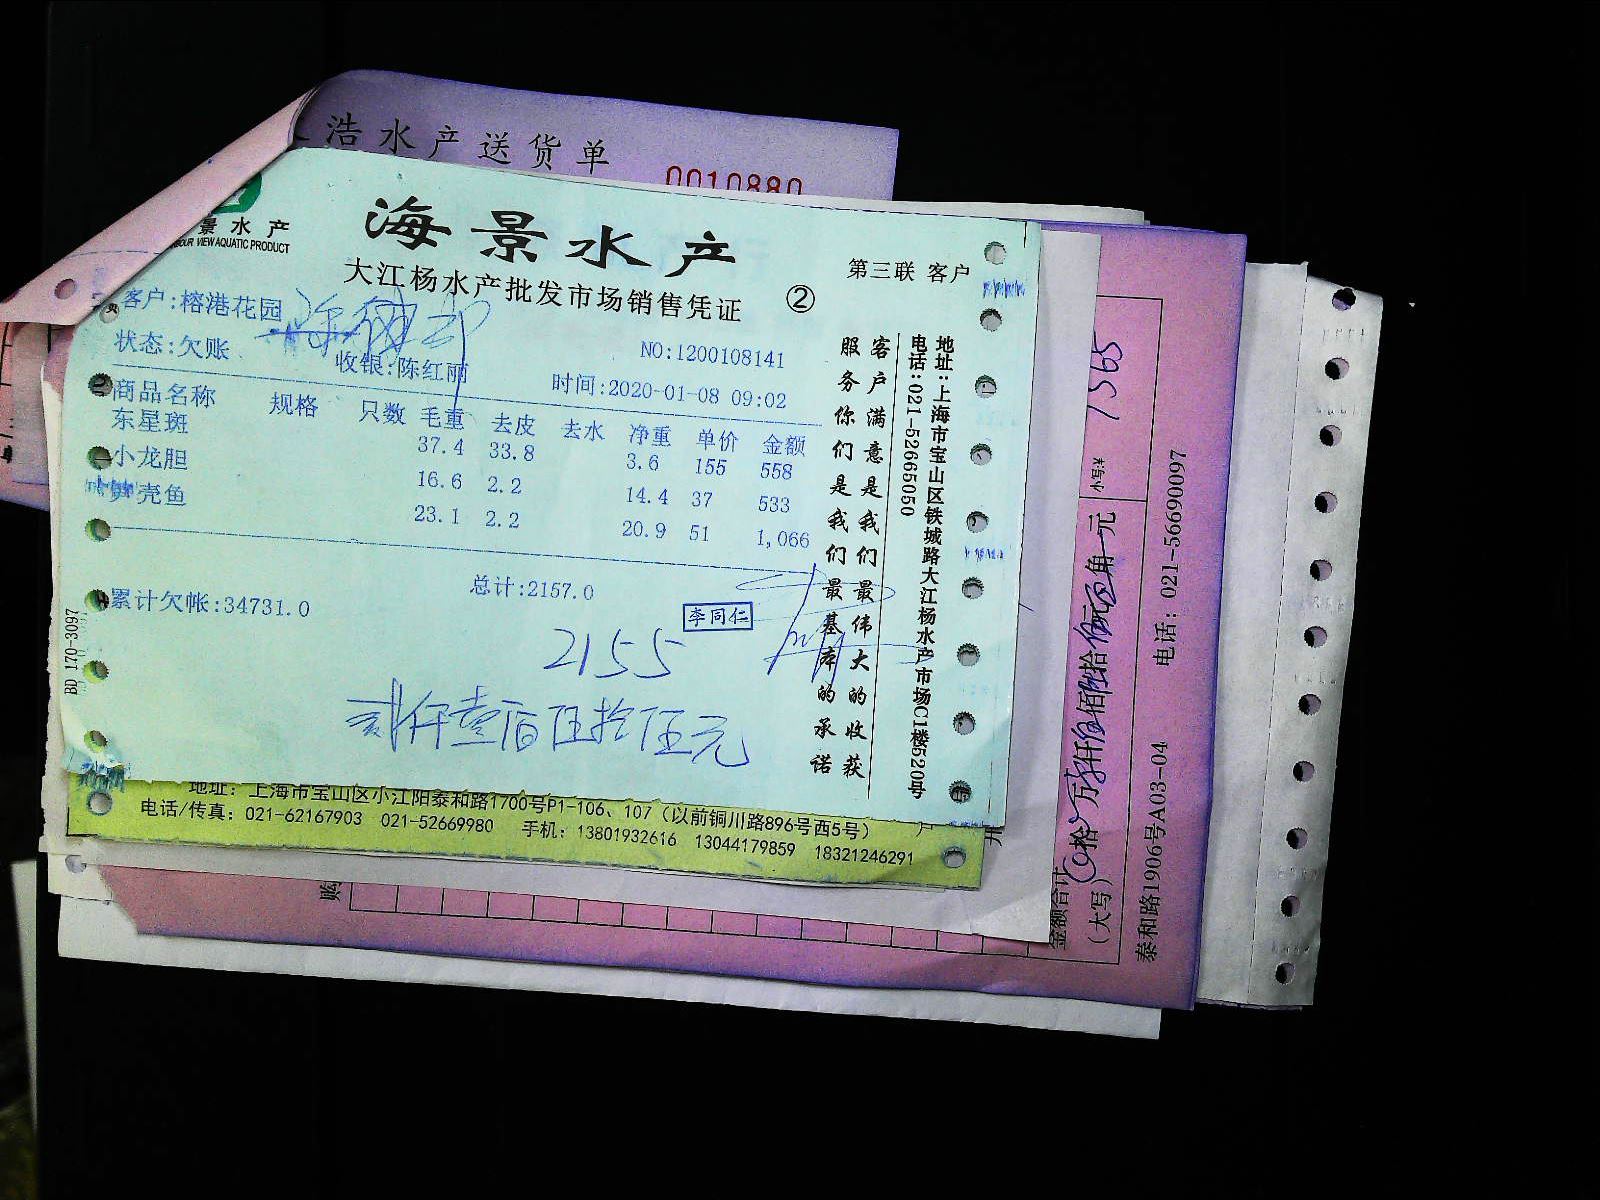 浩水产送货单
0010880
景水产
OUR VIEW AQUATIC PRODUCT
海景水产
大江杨水产批发市场销售凭证
②
第三联 客户
客户:榕港花园
状态:欠账
收银:陈红丽
NO:1200108141
时间:2020-01-08 09:02
商品名称 规格 只数 毛重 去皮 去水 净重 单价 金额
东星斑 37.4 33.8 3.6 155 558
小龙胆 16.6 2.2 14.4 37 533
笋壳鱼 23.1 2.2 20.9 51 1,066
累计欠帐:34731.0
总计:2157.0
李同仁
2155
贰仟壹佰伍拾伍元
客户满意是我们最伟大的收获
服务你们是我们最基本的承诺
地址:上海市宝山区铁城路大江杨水产市场C1楼520号
电话:021-52665050
BD 170-3097
地址: 上海市宝山区小江阳泰和路1700号P1-106、107（以前铜川路896号西5号）
电话/传真: 021-62167903 021-52669980 手机: 13801932616 13044179859 18321246291
购
金额合计
(大写)
小写:¥ 1565
泰和路1906号A03-04 电话: 021-56690097